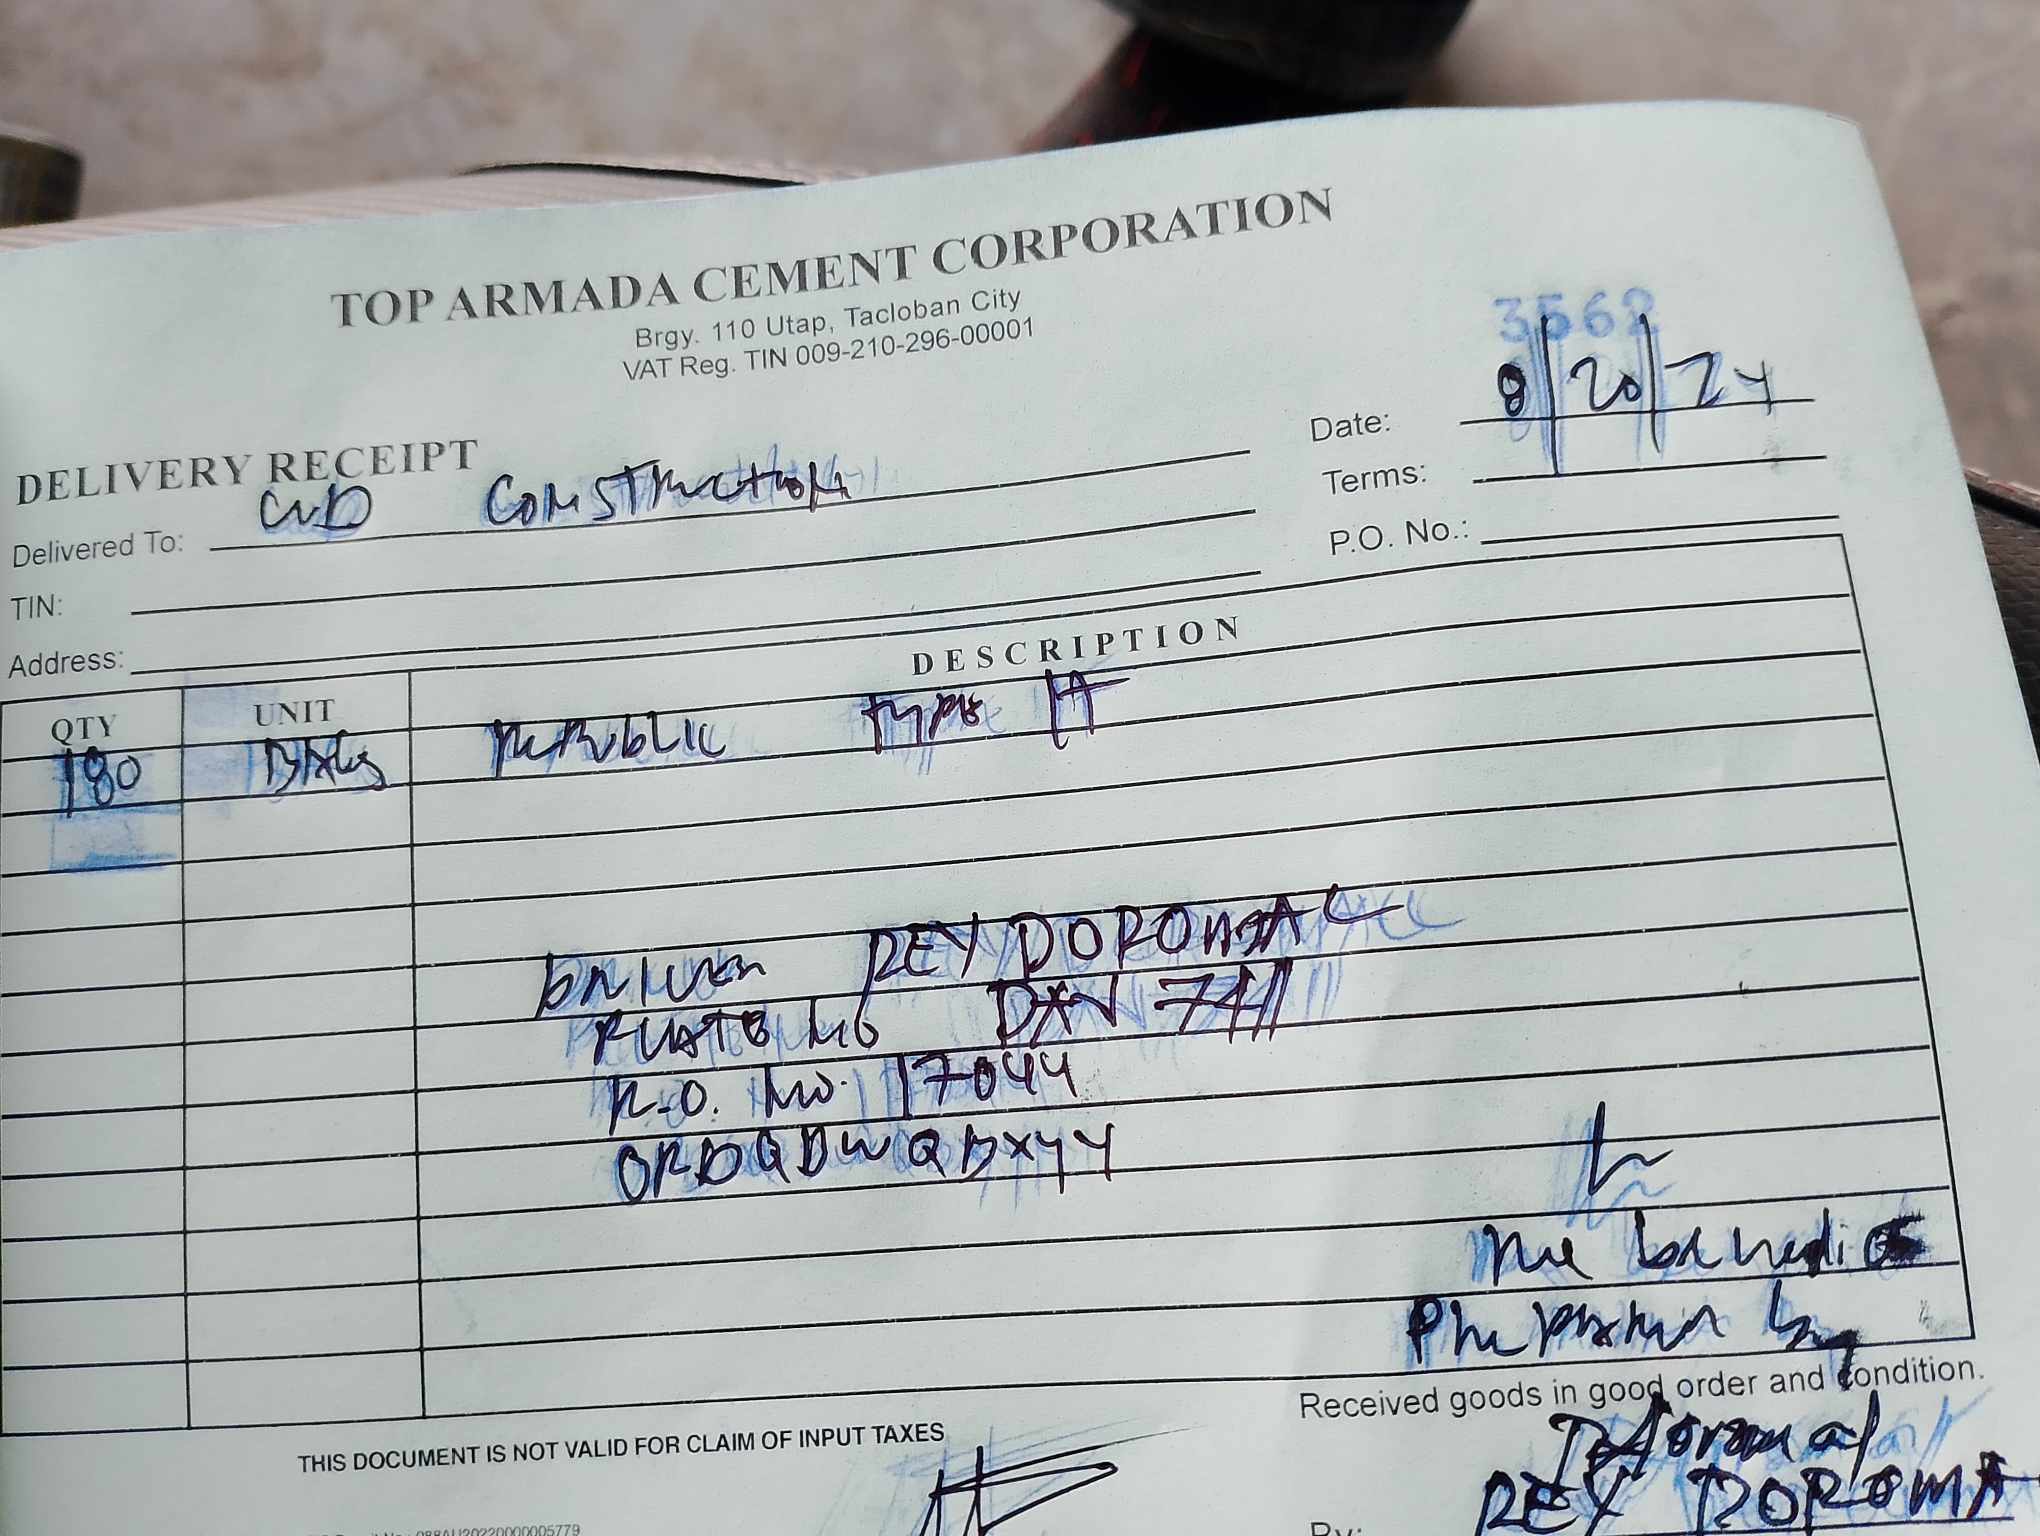 TOP ARMADA CEMENT CORPORATION
Brgy. 110 Utap, Tacloban City
VAT Reg. TIN 009-210-296-00001
3562
DELIVERY RECEIPT
Date: 8/20/24
Delivered To: CWD CONSTRUCTION
Terms:
TIN:
P.O. No.:
Address:
QTY UNIT DESCRIPTION
180 BAGS REPUBLIC TYPE 1T
DRIVER REY DOROMAL
PLATE NO DAV 7411
P.O. NO. 17044
ORDQDWQBXYY
Prepared by
Received goods in good order and condition.
THIS DOCUMENT IS NOT VALID FOR CLAIM OF INPUT TAXES
Doromal
REY DOROMA
By: